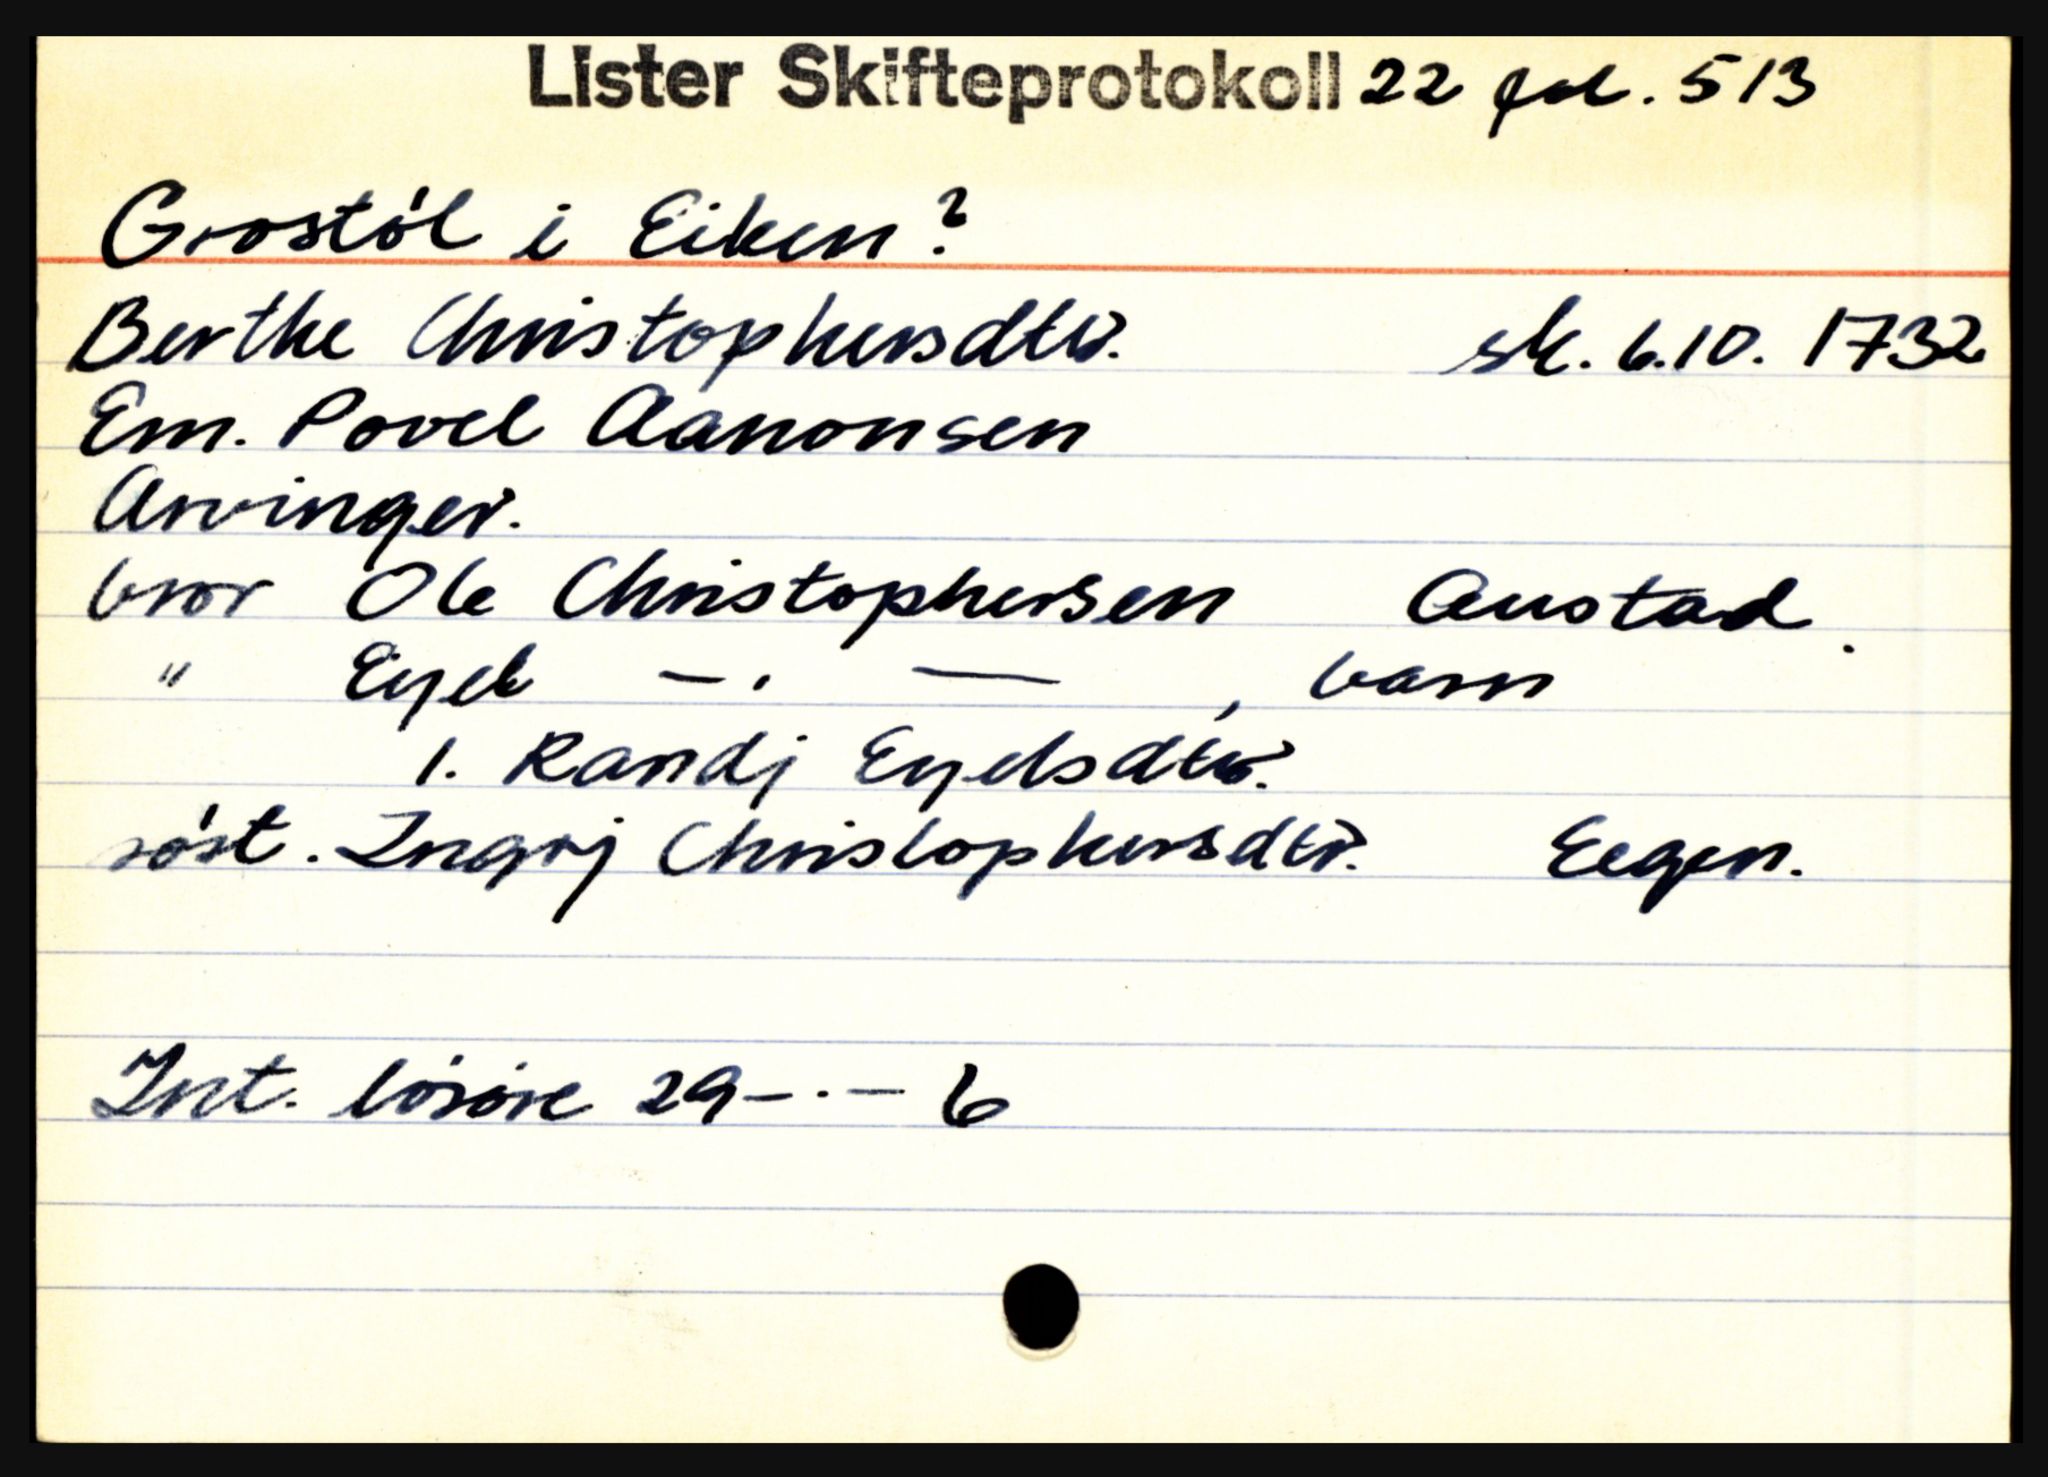 Lister Skifteprotokoll 22 fol. 513
Grostøl i Eiken?
Berthe Christophersdtr. sk. 6.10. 1732
Em. Povel Aanonsen
Arvinger.
bror Ole Christophersen Austad.
" Eyel —. — , barn
1. Randj Eyelsdtr.
søst. Ingrj Christophersdtr. Eegen.
Int. løsøre 29 – . – 6